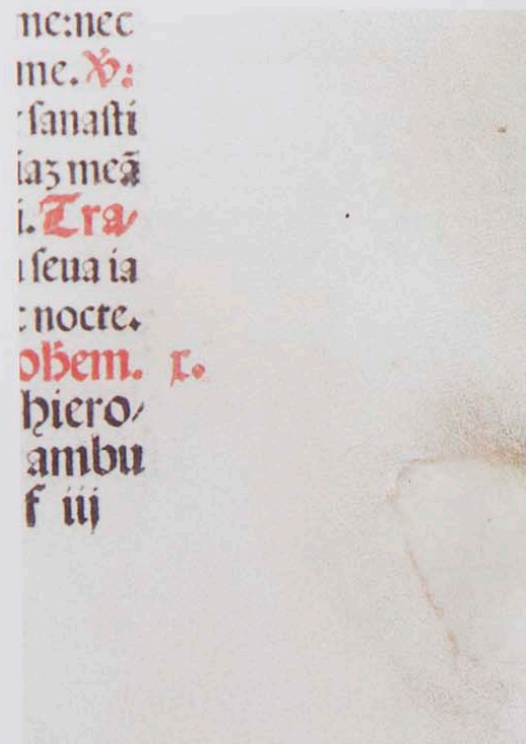 me:nec
me. ℣:
ſanaſti
iaꝫ meā
i. Tra/
ſeua ia
nocte.
ohem. x.
hiero/
ambu
f iij